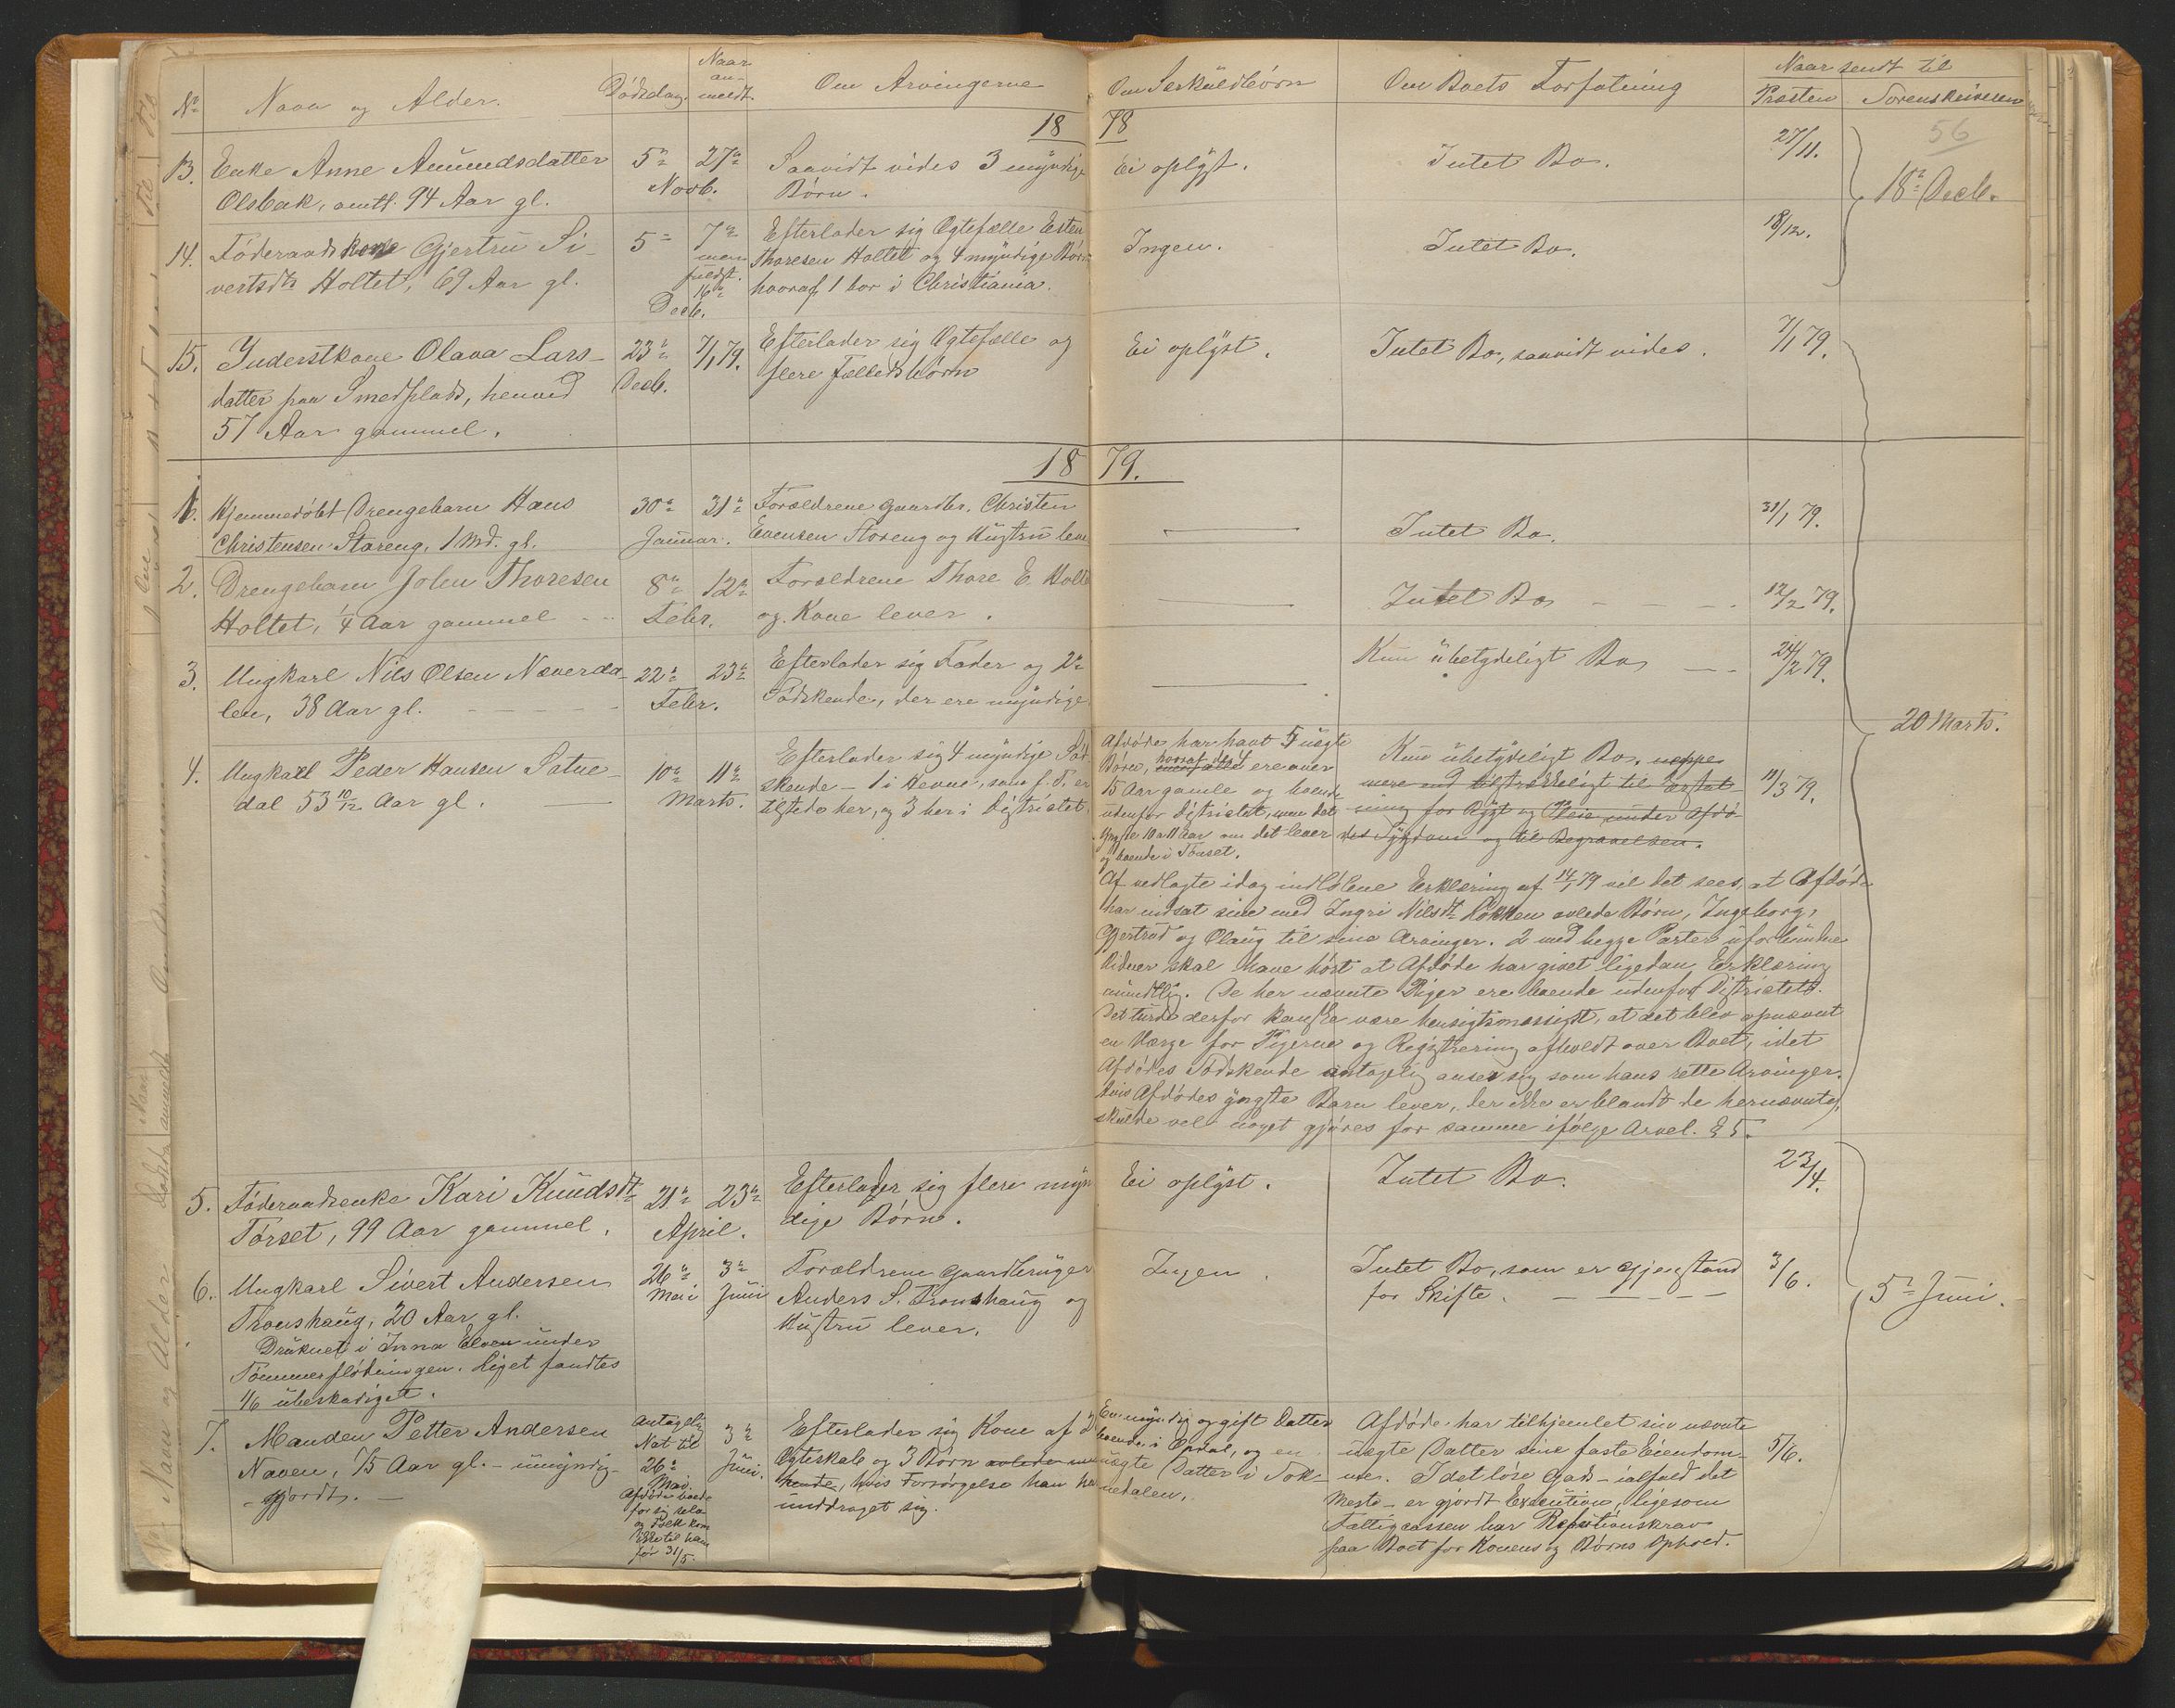 No Navn og Alder. Dödsdag. Naar an- meldt. Om Arvingerne Om Serkuldbörn Om Boets Forfatning Naar sendt til
Præsten Sorenskriveren
18 78
56
13. Enke Anne Amundsdatter 5te 27de Saavidt vides 3 myndige Ei oplyst. Intet Bo. 27/11.
Olsbak, omtr. 94 Aar gl. Novb. Börn. 18de Decb.
14. Föderaadskone Gjertru Si- 5te 7de Efterlader sig Ægtefælle Esten Ingen. Intet Bo. 18/12.
vertsdtr Holtet, 69 Aar gl. Thoresen Holtet og 4 myndige Börn
16de hvoraf 1 bor i Christiania.
Decb.
15. Inderstkone Olava Lars- 23de 7/1 79. Efterlader sig Ægtefælle og Ei oplyst. Intet Bo, saavidt vides. 7/1 79.
datter paa Smedplads, henved Decb. flere Fællesbörn
57 Aar gammel.
18 79.
1. Hjemmedöbt Drengebarn Hans 30te 31te Forældrene Gaardbr. Christen — Intet Bo. 31/1 79.
Christensen Storeng, 1 Md. gl. Januar. Evensen Storeng og Hustru leve
2. Drengebarn John Thoresen 8de 12te Forældrene Thore E. Holte — Intet Bo — — 12/2 79.
Holtet, 1/4 Aar gammel Febr. og Kone lever.
3. Ungkarl Nils Olsen Næverda- 22de 23de Efterlader sig Fader og 2de — Kun übetydeligt Bo — 24/2 79.
len, 38 Aar gl. Febr. Södskende, der ere myndige
20 Marts.
4. Ungkarl Peder Hansen Sætue- 10de 11te Efterlader sig 4 myndige Söd-
dal 53 10/12 Aar gl. Marts. skende - 1 i Hevne, som f. T. er
tilstede her, og 3 her i Distriktet.
Afdöde har havt 5 uægte
Börn, hvoraf de 4 ere over
15 Aar gamle og boende
udenfor Distriktet, men det
yngste 10 a 11 Aar om det lever
og boende i Tönset.
Kun übetydeligt Bo, neppe
mere end tilstrækkeligt til Erstat-
ning for Rögt og Pleie under Afdö-
des Sygdom og til Begravelsen.
11/3 79.
Af vedlagte idag indlöbne Erklæring af 14/1 79 vil det sees, at Afdöde
har indsat sine med Ingri Nilsdtr Lökken avlede Börn, Ingeborg,
Gjertrud og Olaug til sine Arvinger. 2 med begge Parter uforbundne
Vidner skal have hört at Afdöde har givet ligedan Erklæring
mundtlig. De her nævnte Piger ere boende udenfor Distriktet.
Det turde derfor kanske være hensigtsmæssigt, at det blev opnævnt
en Værge for Pigerne og Registrering afholdt over Boet, idet
Afdödes Södskende antagelig anser sig som hans rette Arvinger.
Hvis Afdödes yngste Barn lever, der ikke er blandt de hernævnte,
skulde vel noget gjöres for samme ifölge Arvel. § 5.
5. Föderaadsenke Kari Knudsdtr 21de 23de Efterlader sig flere myn Ei oplyst. Intet Bo. 23/4.
Törset, 99 Aar gammel. April. dige Börn.
6. Ungkarl Sivert Andersen 26de 3de Forældrene Gaardbruger Ingen. Intet Bo, som er Gjenstand 3/6.
Tronshaug, 20 Aar gl. Mai Juni Anders S. Tronshaug og for Skifte. — — 5te Juni.
Druknet i Inna Elven under Hustru lever.
Tömmerflödningen. Liget fandtes
1/6 übeskadiget.
7. Manden Petter Andersen
Naven, 75 Aar gl. - umyndig-
gjordt. —
Antagelig
Nat til
26de
Mai.
Afdöde boede
for sig selv
og Folk kom
ikke til ham
för 31/5.
3de
Juni.
Efterlader sig Kone af 2
Ægteskab og 3 Börn avlede
hende, hvis Forsörgelse han har
unddraget sig.
En myndig og gift Datter
boende i Opdal, og en
uægte Datter i Sok-
nedalen.
Afdöde har tilhjemlet sin nævnte
uægte Datter sine faste Eiendom-
me. I det löse Gods - ialfald det
Meste - er gjordt Execution, ligesom
Fattigcassen har Refusionskrav
paa Boet for Konens og Börns Ophold.
5/6.